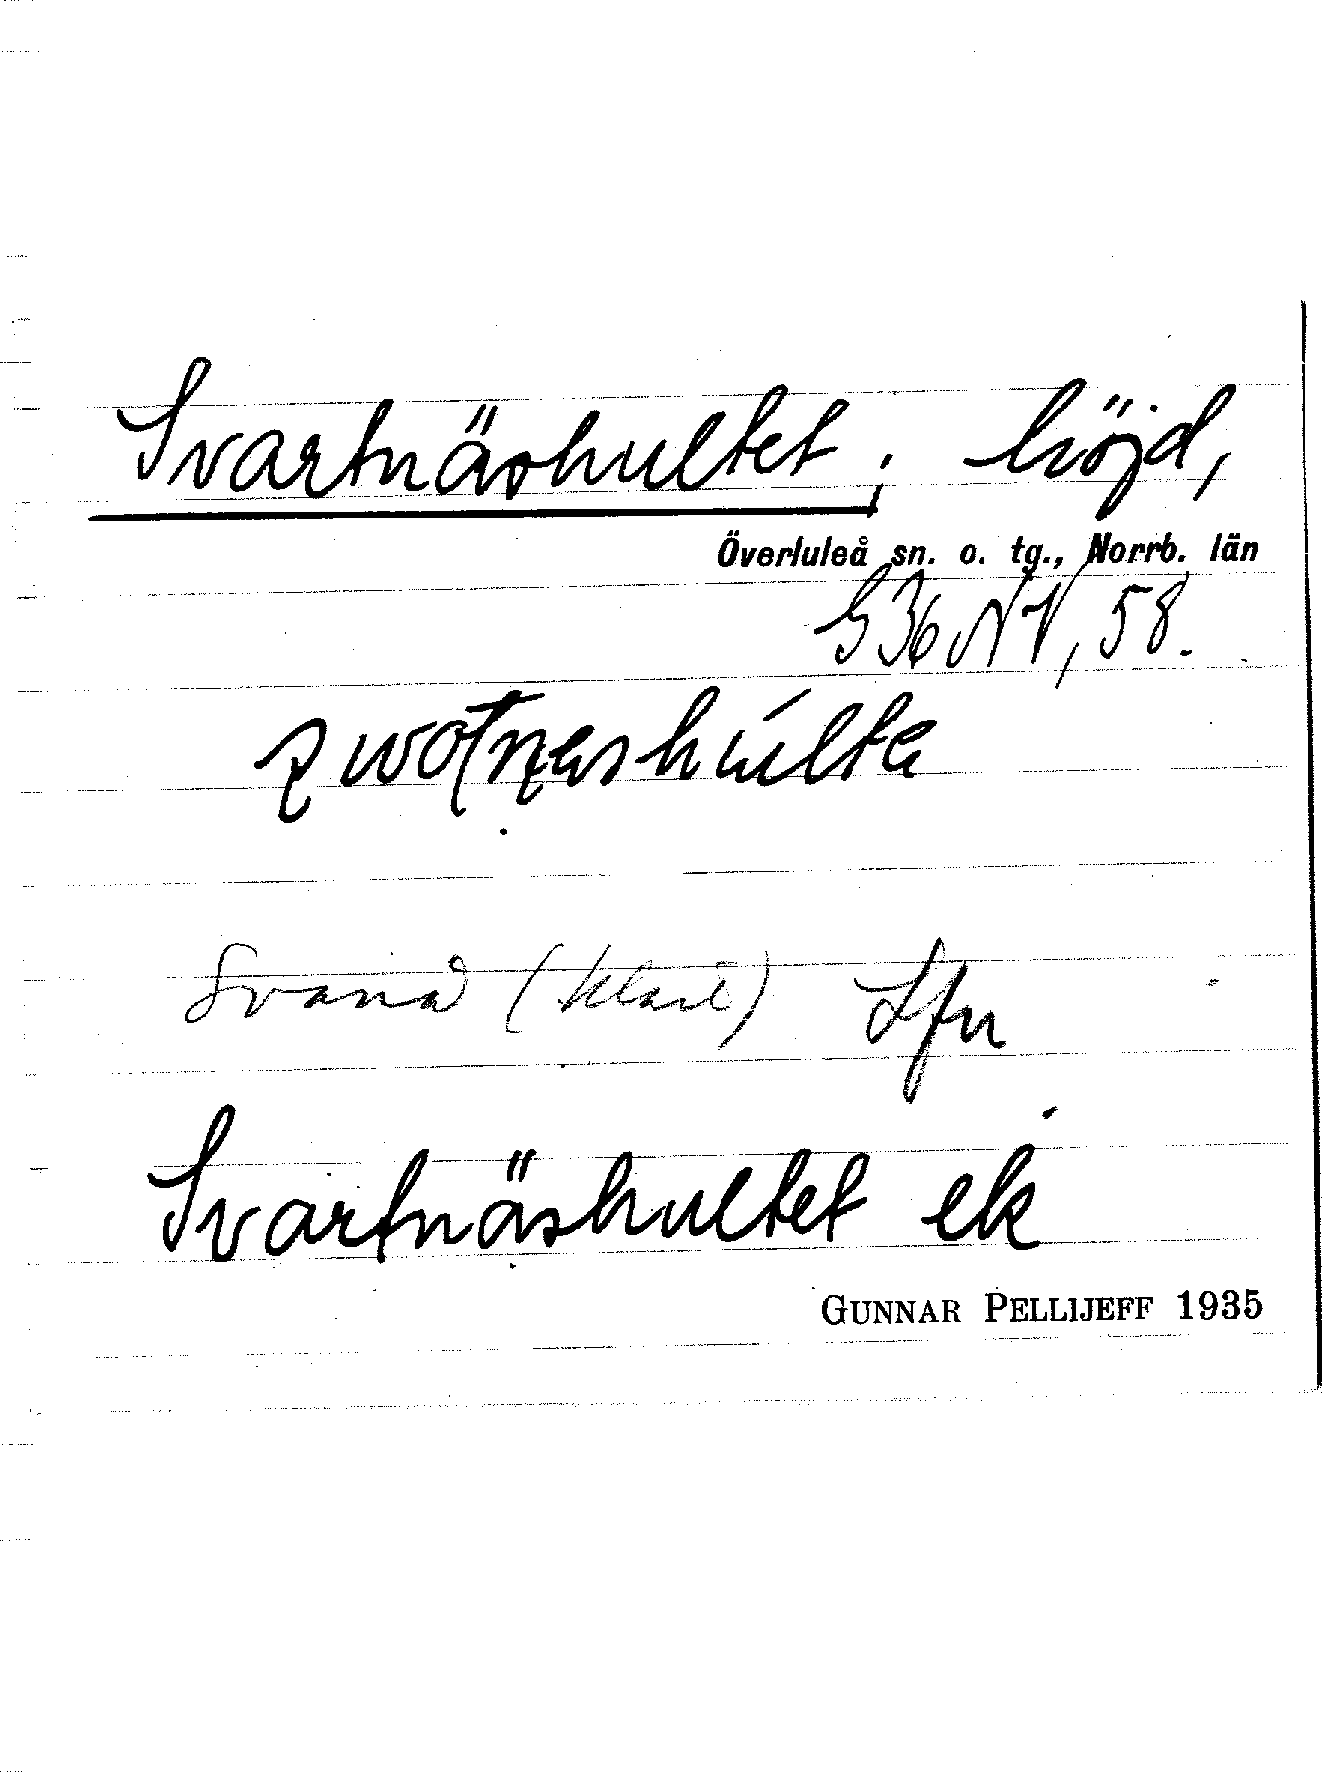 Svartnäshultet; höjd,
Överluleå sn. o. tg., Norrb. län
G36 NV, 58.
Svanå (Klack) Lfn
Svartnäshultet ek
GUNNAR PELLIJEFF 1935